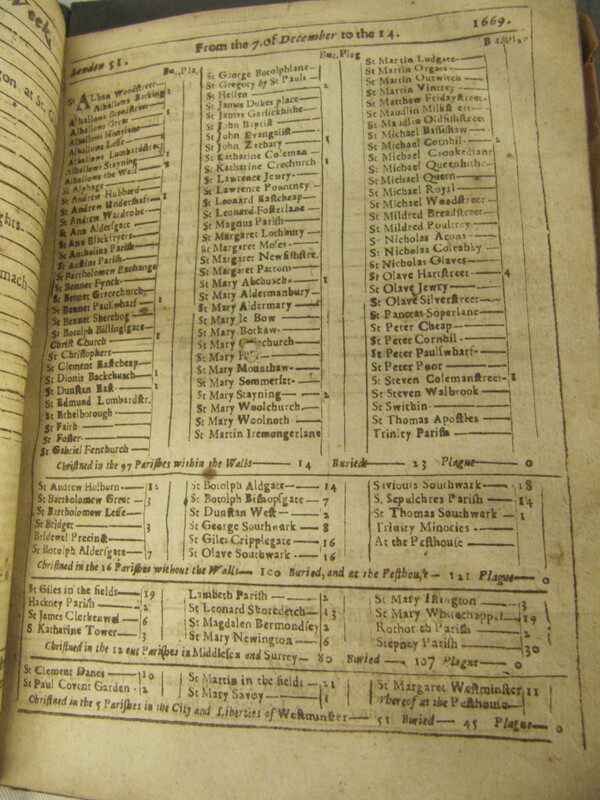 London 51.
From the 7. of December to the 14.
1669.
Bur. Plag
St Alban Woodstreet
Alhallows Barking 1
Alhallows Breadstreet
Alhallows Great 1
Alhallows Honylane
Alhallows Lesse
Alhallows Lumbardstreet
Alhallows Stayning
Alhallows the Wall
St Alphage
St Andrew Hubbard
St Andrew Undershaft 1
St Andrew Wardrobe
St Ann Aldersgate
St Ann Blackfryers
St Antholins Parish
St Austins Parish
St Bartholomew Exchange
St Bennet Fynck
St Bennet Gracechurch
St Bennet Paulswharf 1
St Bennet Sherehog
St Botolph Billingsgate
Christ Church
St Christophers
St Clement Eastcheap
St Dionis Backchurch 1
St Dunstan East 1
St Edmund Lumbardstr.
St Ethelborough
St Faith
St Foster
St Gabriel Fenchurch
Bur. Plag
St George Botolphlane
St Gregory by St Pauls 2
St Hellen
St James Dukes place
St James Garlickhithe
St John Baptist
St John Evangelist
St John Zachary 1
St Katharine Coleman
St Katharine Creechurch 1
St Lawrence Jewry
St Lawrence Pountney
St Leonard Eastcheap
St Leonard Fosterlane
St Magnus Parish
St Margaret Lothbury
St Margaret Moses
St Margaret Newfishstre.
St Margaret Pattons
St Mary Abchurch 1
St Mary Aldermanbury
St Mary Aldermary
St Mary le Bow
St Mary Bothaw
St Mary Colechurch
St Mary Hill
St Mary Mounthaw
St Mary Sommerset
St Mary Stayning 2
St Mary Woolchurch
St Mary Woolnoth
St Martin Iremongerlane
Bur. Plag
St Martin Ludgate
St Martin Orgars
St Martin Outwitch
St Martin Vintrey
St Matthew Fridaystreet
St Maudlin Milkstreet
St Maudlin Oldfishstreet
St Michael Bassishaw
St Michael Cornhil 2
St Michael Crookedlane
St Michael Queenhithe
St Michael Quern
St Michael Royal
St Michael Woodstreet
St Mildred Breadstreet
St Mildred Poultrey
St Nicholas Acons
St Nicholas Coleabby
St Nicholas Olaves
St Olave Hartstreet 4
St Olave Jewry
St Olave Silverstreet
St Pancras Soperlane
St Peter Cheap
St Peter Cornhil
St Peter Paulswharf
St Peter Poor
St Steven Colemanstreet
St Steven Walbrook
St Swithin
St Thomas Apostles
Trinity Parish
Christned in the 97 Parishes within the Walls 14 Buried 23 Plague 0
St Andrew Holborn 12
St Bartholomew Great 3
St Bartholomew Lesse
St Bridget 3
Bridewel Precinct
St Botolph Aldersgate 7
St Botolph Aldgate 14
St Botolph Bishopsgate 7
St Dunstan West 2
St George Southwark 8
St Giles Cripplegate 16
St Olave Southwark 16
Saviours Southwark 18
S. Sepulchres Parish 14
St Thomas Southwark 1
Trinity Minories
At the Pesthouse
Christned in the 16 Parishes without the Walls 100 Buried, and at the Pesthouse 121 Plague 0
St Giles in the fields 19
Hackney Parish 2
St James Clerkenwel 6
S. Katharine Tower 3
Lambeth Parish 2
St Leonard Shoreditch 13
St Magdalen Bermondsey 2
St Mary Newington 6
St Mary Islington 3
St Mary Whitechappel 19
Rotherith Parish 2
Stepney Parish 30
Christned in the 12 out Parishes in Middlesex and Surrey 80 Buried 107 Plague 0
St Clement Danes 10
St Paul Covent Garden 2
St Martin in the fields 21
St Mary Savoy 1
St Margaret Westminster 11
Whereof at the Pesthouse
Christned in the 5 Parishes in the City and Liberties of Westminster 51 Buried 45 Plague 0